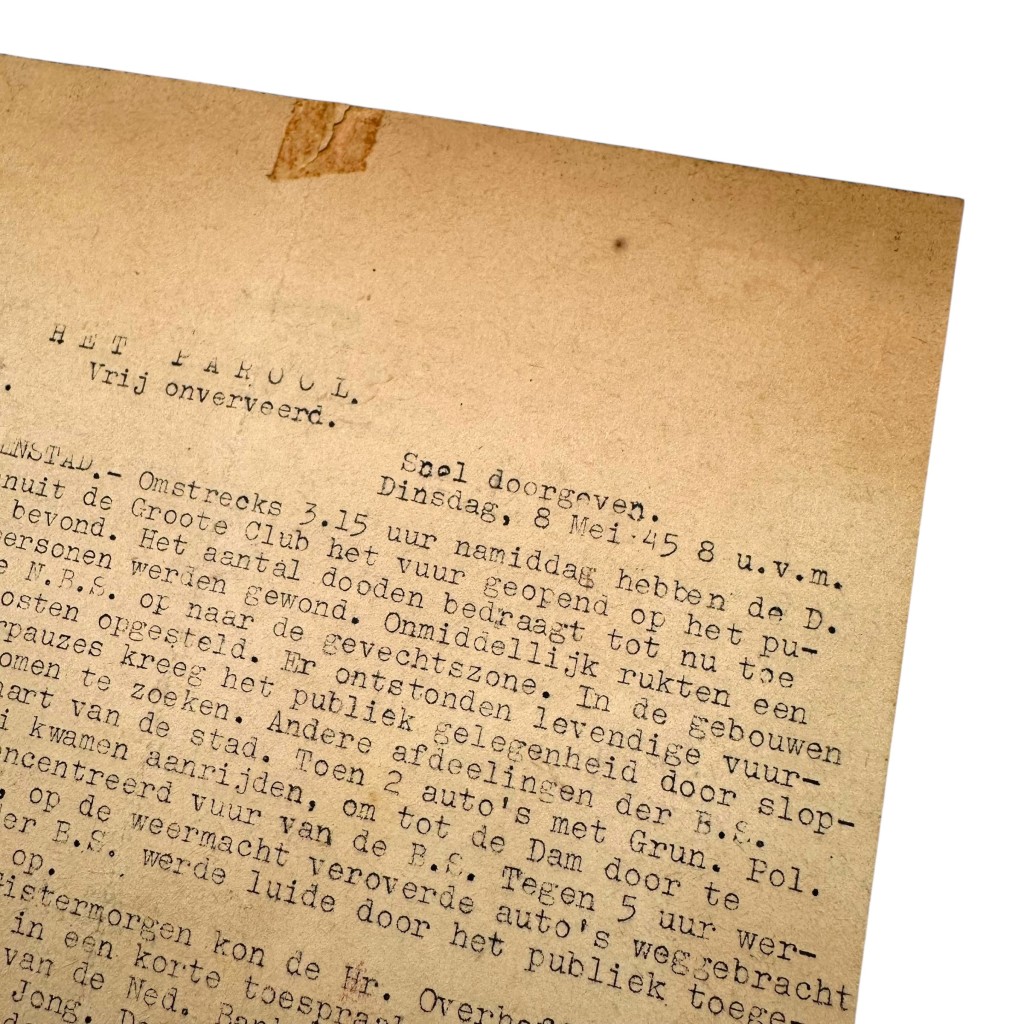 HET PAROOL.
Vrij onverveerd.
Snel doorgeven.
Dinsdag, 8 Mei '45 8 u.v.m.
ENSTAD.- Omstreeks 3.15 uur namiddag hebben de D.
nuit de Groote Club het vuur geopend op het pu-
bevond. Het aantal dooden bedraagt tot nu toe
ersonen werden gewond. Onmiddellijk rukten een
e N.B.S. op naar de gevechtszone. In de gebouwen
osten opgesteld. Er ontstonden levendige vuur-
rpauzes kreeg het publiek gelegenheid door slop-
omen te zoeken. Andere afdeelingen der B.S.
hart van de stad. Toen 2 auto's met Grun. Pol.
i kwamen aanrijden, om tot de Dam door te
oncentreerd vuur van de B.S. Tegen 5 uur wer-
, op de weermacht veroverde auto's weggebracht
er B.S. werde luide door het publiek toege-
op.
Gistermorgen kon de Hr.
in een korte toespraa
van de Ned. Ban
Jong.